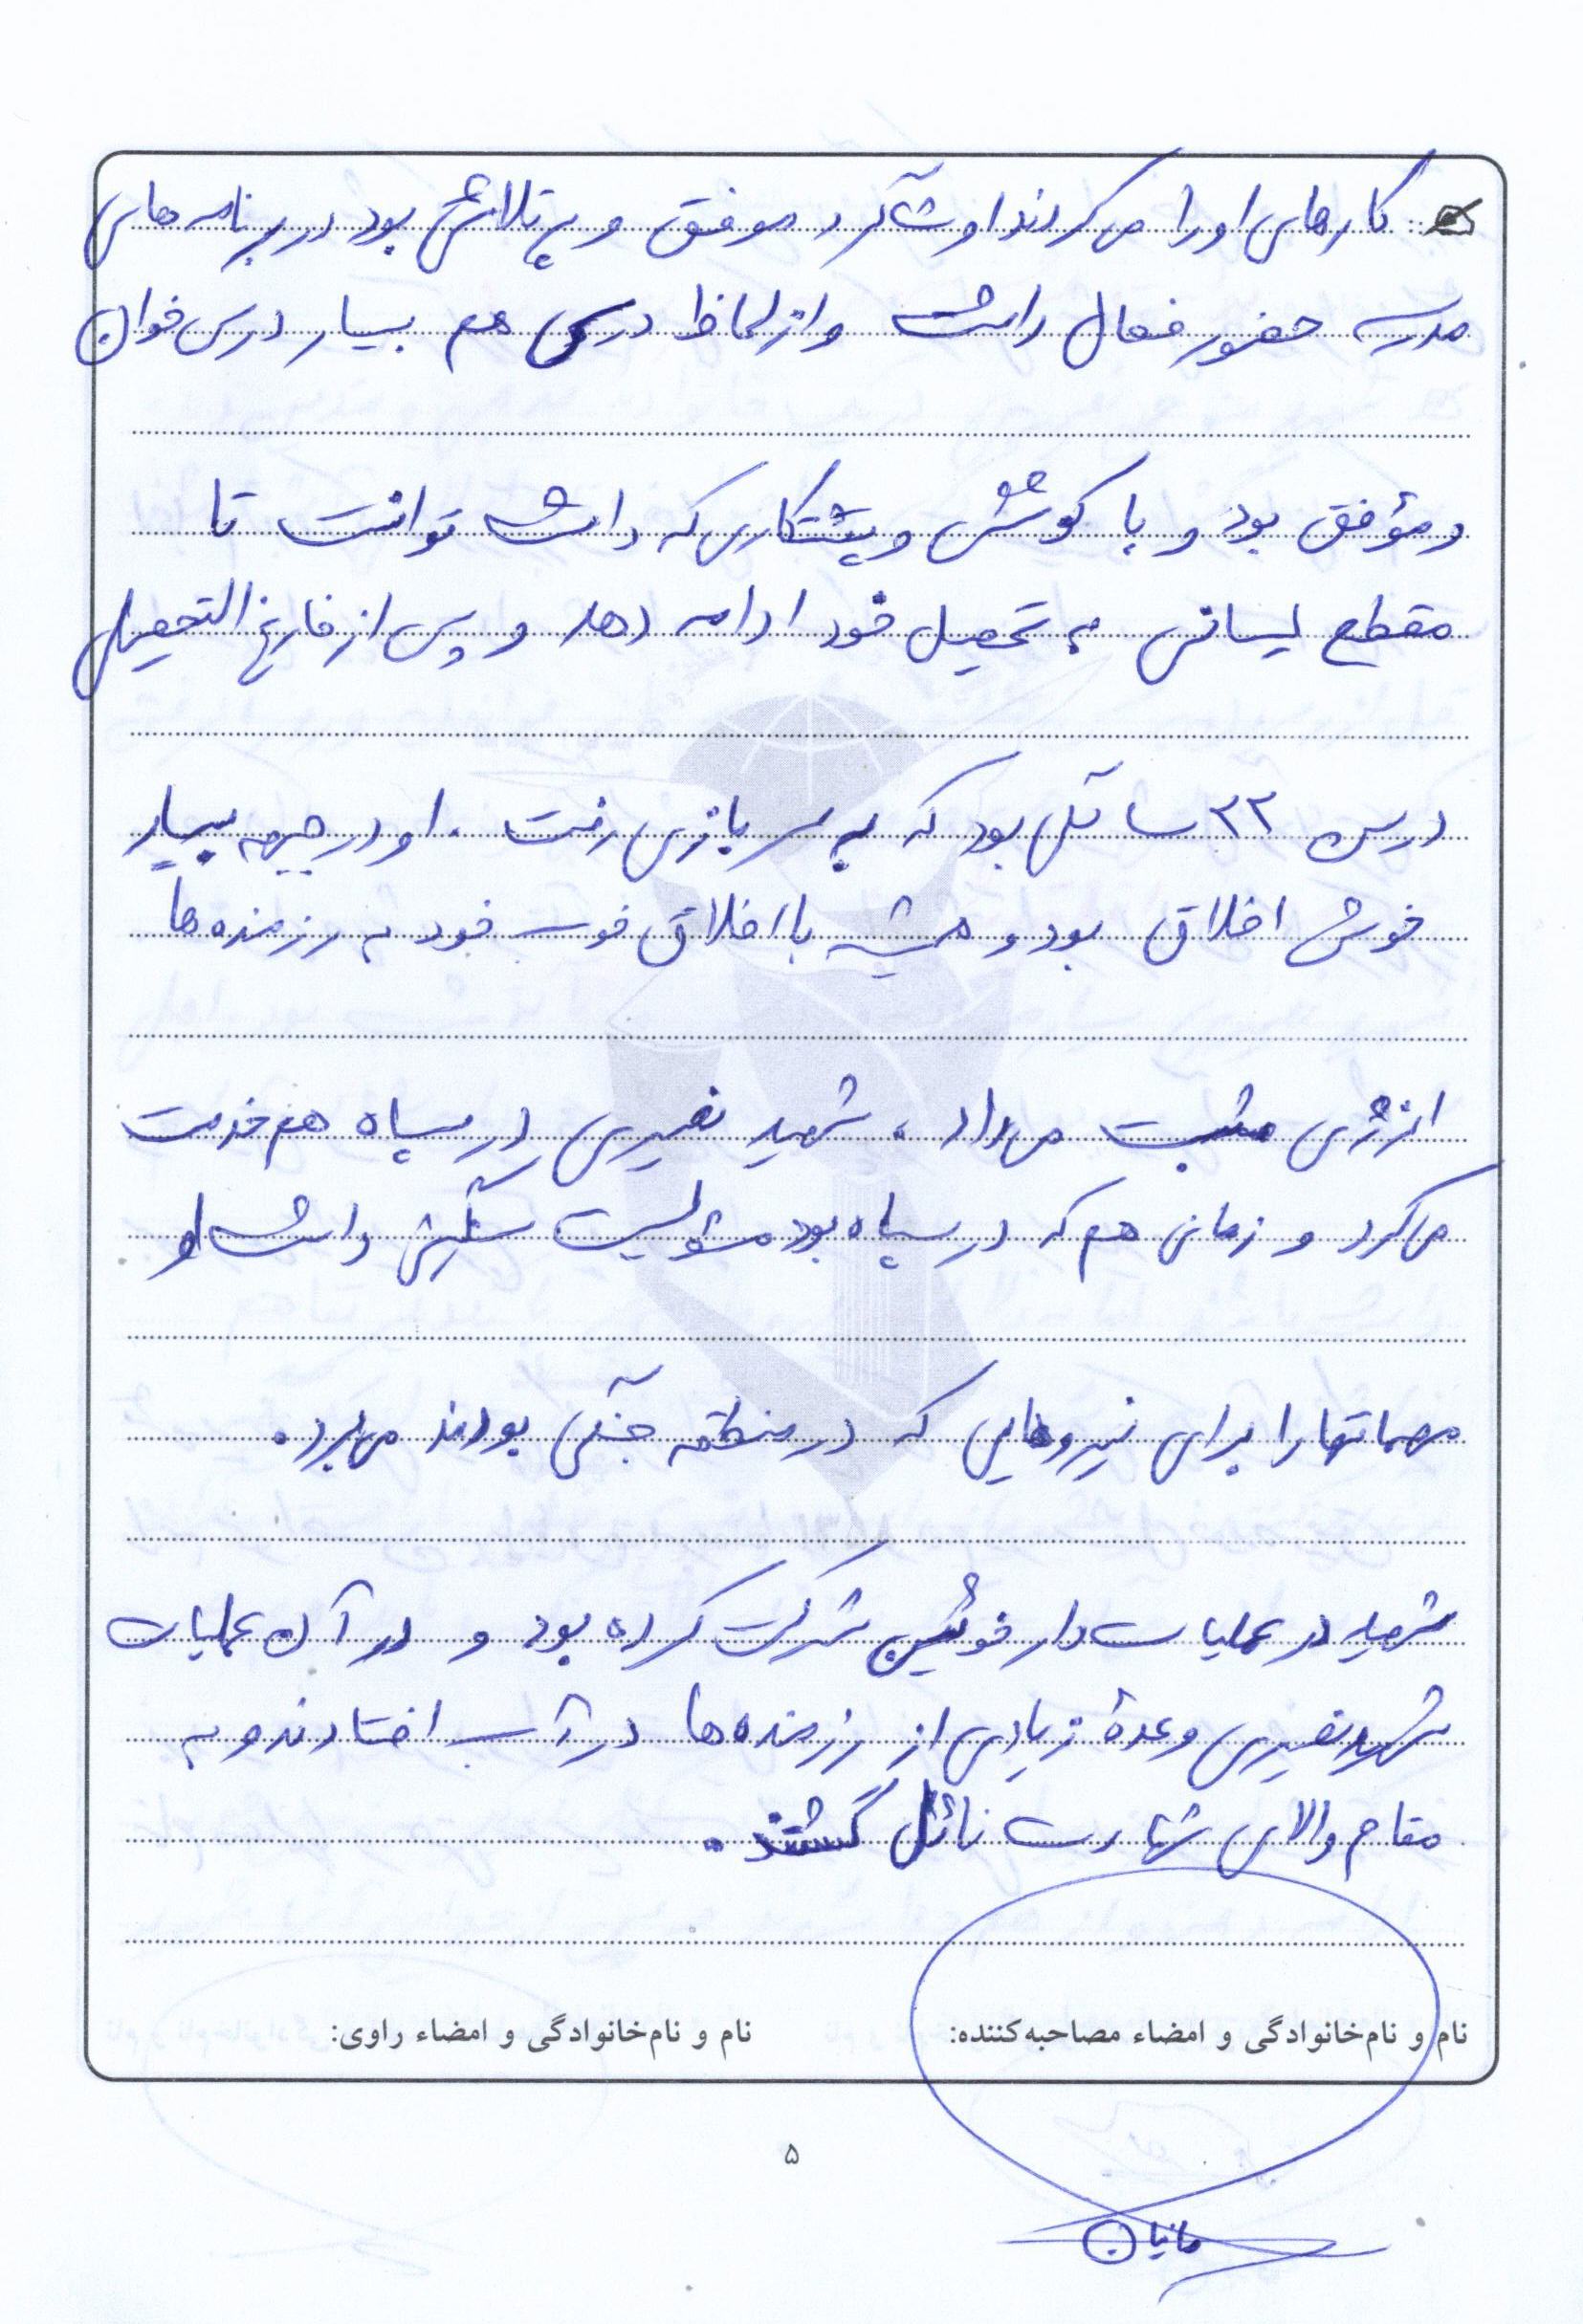 کارهای او را می‌کردند او شاگرد موفق و پرتلاشی بود در برنامه‌های
مدرسه حضور فعال داشت و از لحاظ درسی هم بسیار درس خوان
و مؤفق بود و با کوشش و پشتکاری که داشت توانست تا
مقطع لیسانس به تحصیل خود ادامه دهد و پس از فارغ التحصیلی
درس ۲۳ سالگی بود که به سربازی رفت . او در جبهه بسیار
خوش اخلاق بود و همیشه با اخلاق خوب خود به رزمنده‌ها
انرژی مثبت می‌داد ، شهید نصیری در سپاه هم خدمت
می‌کرد و زمانی هم که در سپاه بود مسئولیت سنگینی داشت او
مهماتها را برای نیروهایی که در منطقه جنگی بودند می‌برد .
شهید در عملیات دارخوئین شرکت کرده بود و در آن عملیات
شهید نصیری و عدهٔ زیادی از رزمنده‌ها در آب افتادند و به
مقام والای شهادت نائل گشتند .
نام و نام‌خانوادگی و امضاء مصاحبه‌کننده: نام و نام‌خانوادگی و امضاء راوی:
۵